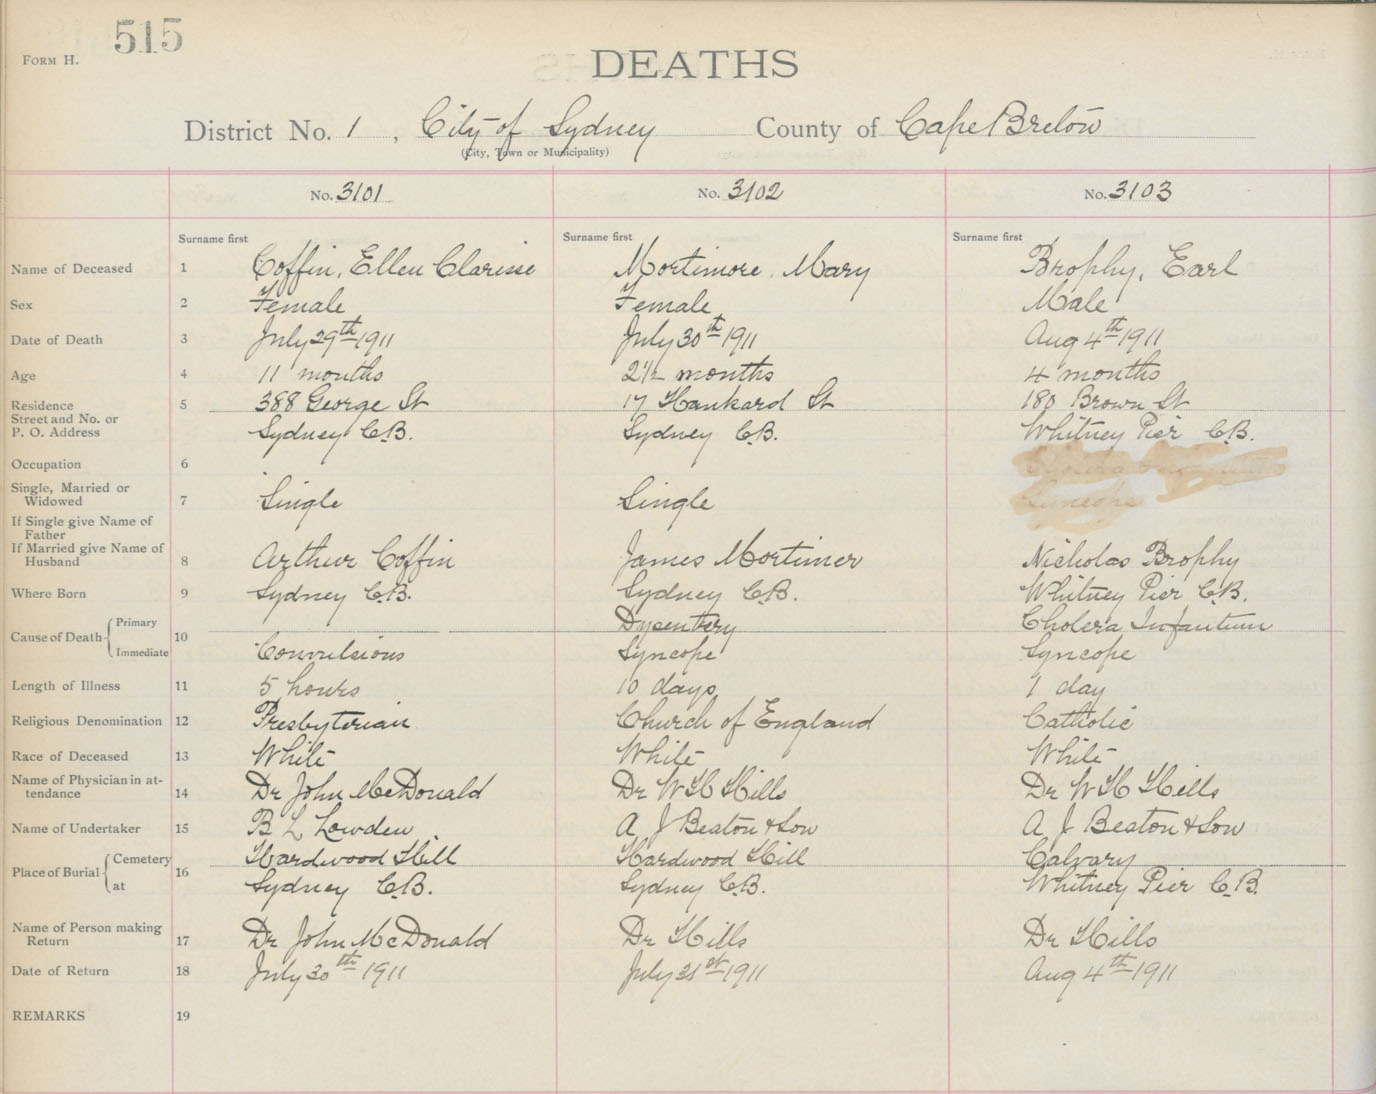 515
FORM H.
DEATHS
District No. 1, City of Sydney County of Cape Breton
(City, Town or Municipality)
No. 3101 No. 3102 No. 3103
Surname first Surname first Surname first
Name of Deceased 1 Coffin, Ellen Clarisse Mortimore, Mary Brophy, Earl
Sex 2 Female Female Male
Date of Death 3 July 29th 1911 July 30th 1911 Aug 4th 1911
Age 4 11 months 2 1/2 months 4 months
Residence 5 388 George St 17 Hankard St 180 Brown St
Street and No. or
P. O. Address Sydney C.B. Sydney C.B. Whitney Pier C.B.
Occupation 6
Single, Married or
Widowed 7 Single Single
If Single give Name of
Father
If Married give Name of
Husband 8 Arthur Coffin James Mortimer Nicholas Brophy
Where Born 9 Sydney C.B. Sydney C.B. Whitney Pier C.B.
Cause of Death 10
Primary Dysentery Cholera Infantum
Immediate Convulsions Syncope Syncope
Length of Illness 11 5 hours 10 days 1 day
Religious Denomination 12 Presbyterian Church of England Catholic
Race of Deceased 13 White White White
Name of Physician in at-
tendance 14 Dr John McDonald Dr W H Hills Dr W H Hills
Name of Undertaker 15 B L Lowden A J Beaton & Son A J Beaton & Son
Place of Burial 16
Cemetery Hardwood Hill Hardwood Hill Calvary
at Sydney C.B. Sydney C.B. Whitney Pier C.B.
Name of Person making
Return 17 Dr John McDonald Dr Hills Dr Hills
Date of Return 18 July 30th 1911 July 31st 1911 Aug 4th 1911
REMARKS 19